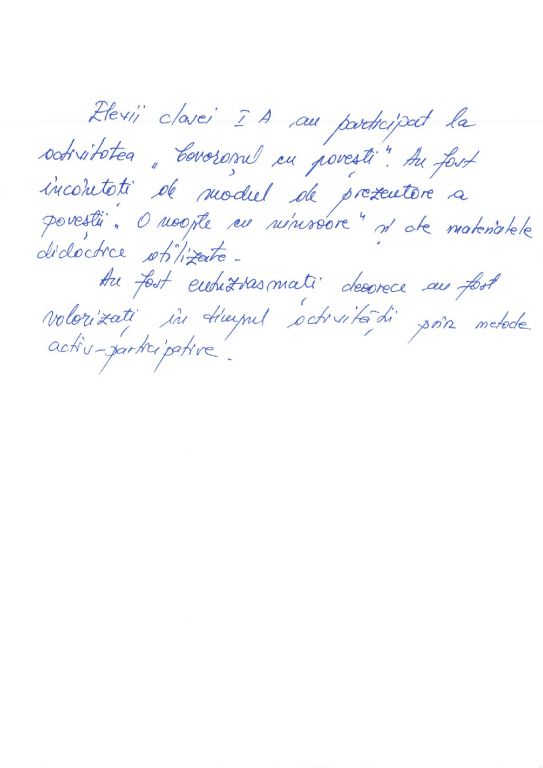 Elevii clasei I A au participat la
activitatea „Covorașul cu povești”. Au fost
încântați de modul de prezentare a
poveștii „O noapte cu ninsoare” și de materialele
didactice utilizate.
Au fost entuziasmați deoarece au fost
valorizați în timpul activității prin metode
activ-participative.